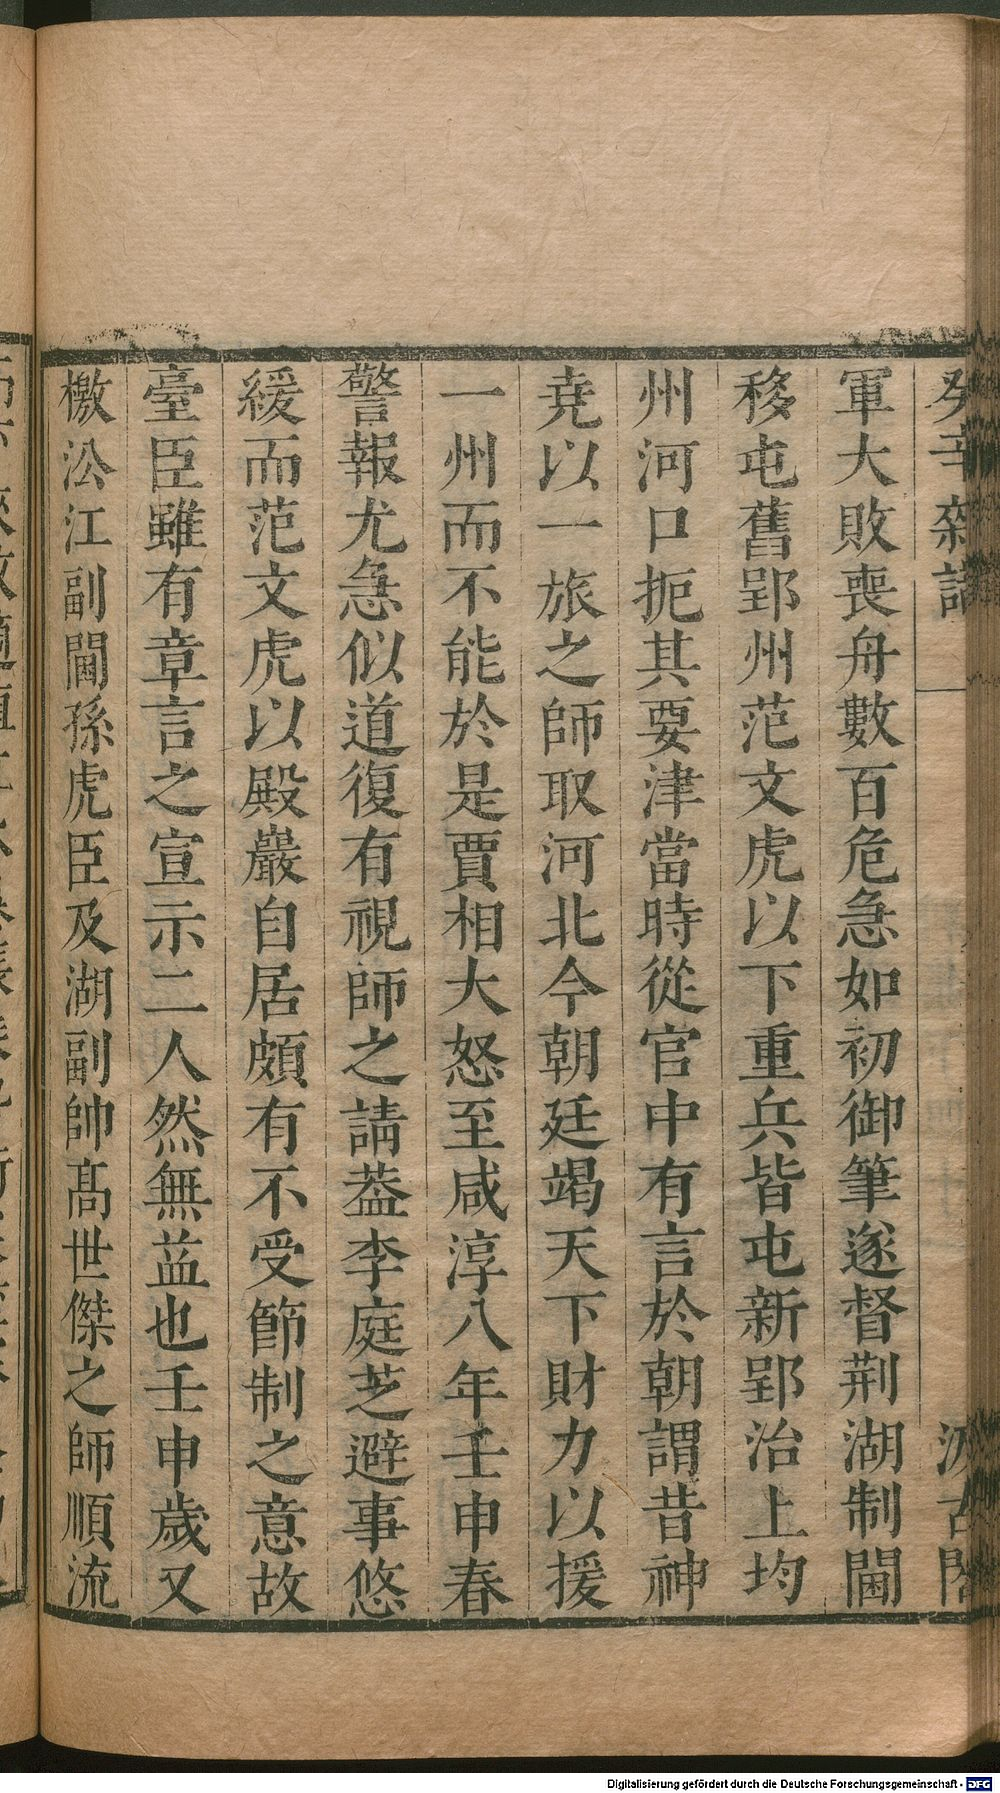 癸辛雜識
汲古閣
軍大敗喪舟數百危急如初御筆遂督荆湖制閫
移屯舊郢州范文虎以下重兵皆屯新郢治上均
州河口扼其要津當時從官中有言於朝謂昔神
堯以一旅之師取河北今朝廷竭天下財力以援
一州而不能於是賈相大怒至咸淳八年壬申春
警報尤急似道復有視師之請葢李庭芝避事悠
緩而范文虎以殿巖自居頗有不受節制之意故
臺臣雖有章言之宣示二人然無益也壬申歲又
檄㳂江副閫孫虎臣及湖副帥髙世傑之師順流
Digitalisierung gefördert durch die Deutsche Forschungsgemeinschaft - DFG